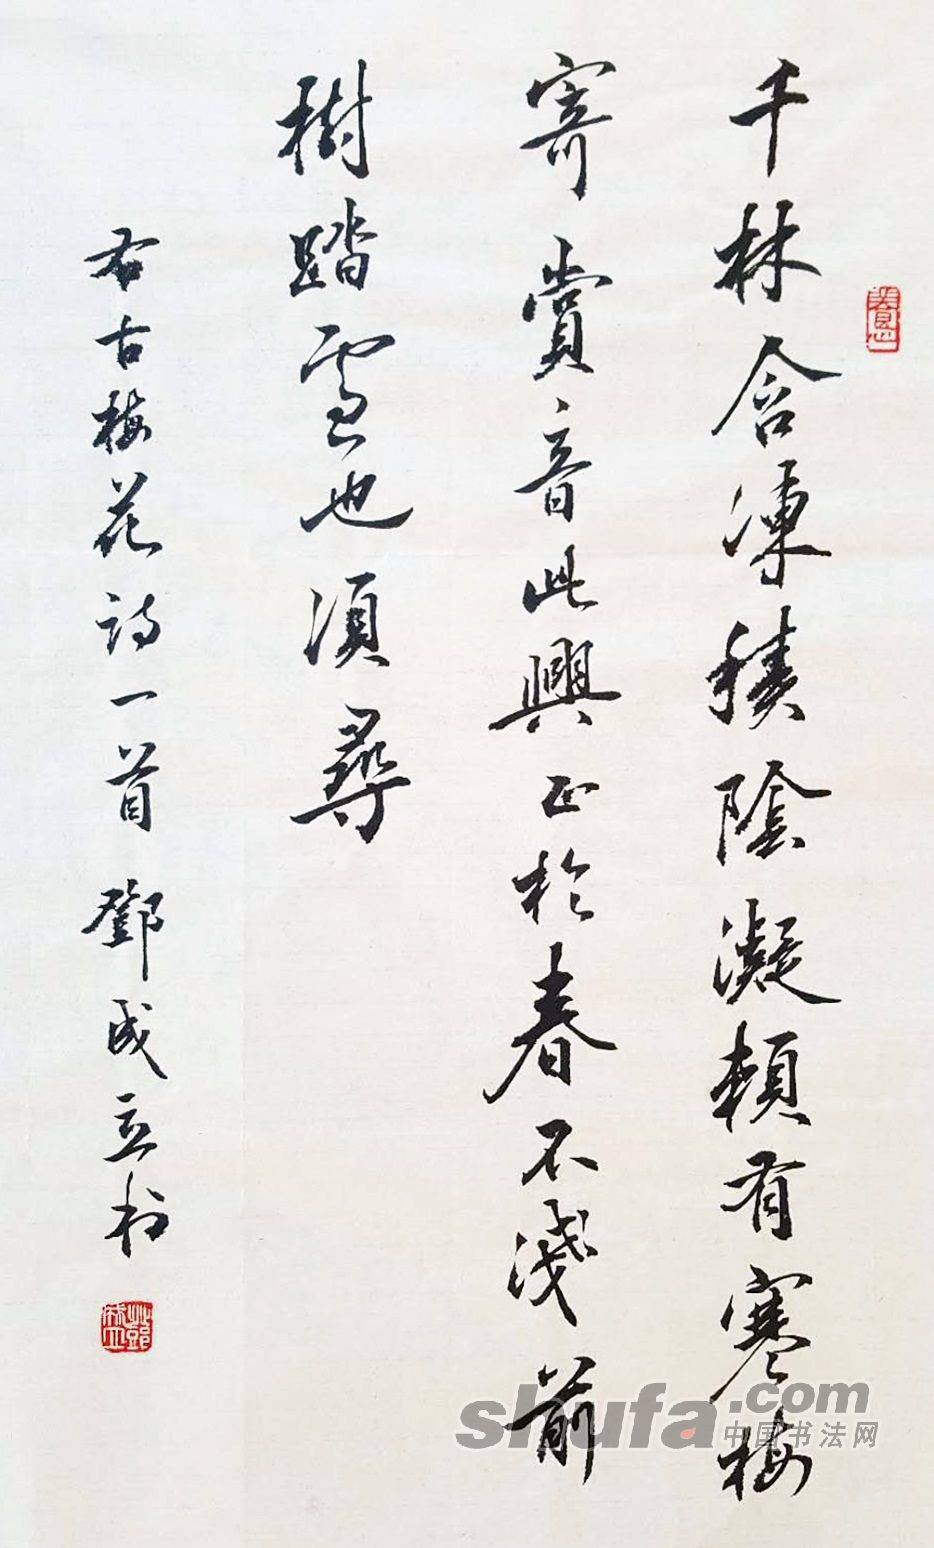 千林含凍積陰凝賴有寒梅
寄賞音此興正於春不淺前
樹踏雪也須尋
右古梅花詩一首 鄧成立村
shufa.com
中国书法网